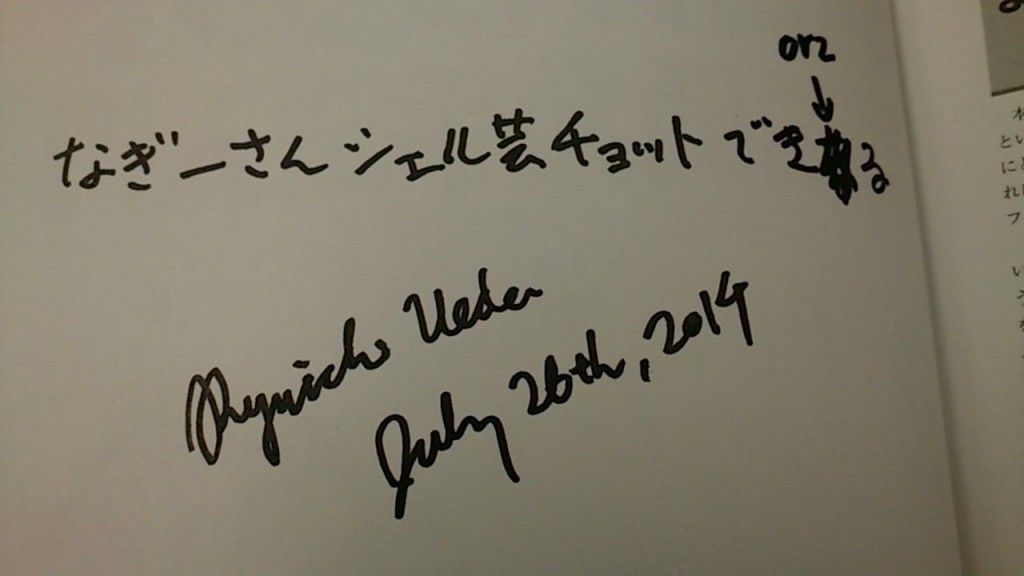 orz
↓
なぎーさんシェル芸チョットできる
Ryuichi Ueda
July 26th, 2014